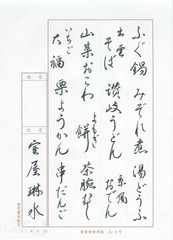 ふぐ鍋 みぞれ煮 湯どうふ
出雲そば 讃岐うどん 京風おでん
山菜おこわ よもぎ餅 茶腕むし
いちご大福 栗ようかん 串だんご
室屋琳水